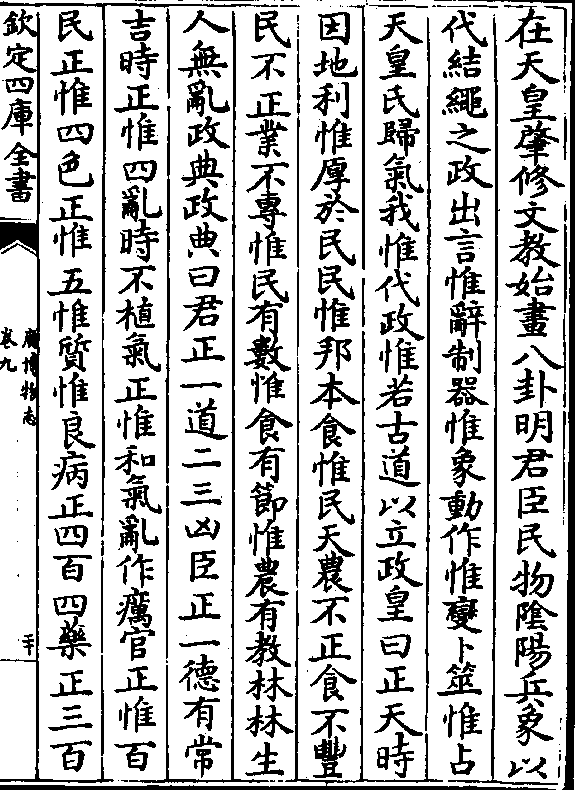 在天皇肇修文教始畫八卦明君臣民物陰陽兵象以
代結繩之政出言惟辭制器惟象動作惟變卜筮惟占
天皇氏歸氣我惟代政惟若古道以立政皇曰正天時
因地利惟厚於民民惟邦本食惟民天農不正食不豐
民不正業不專惟民有數惟食有節惟農有教林林生
人無亂政典政典曰君正一道二三凶臣正一德有常
吉時正惟四亂時不植氣正惟和氣亂作癘官正惟百
民正惟四色正惟五惟質惟良病正四百四藥正三百
欽定四庫全書
廣博物志
卷九
二十